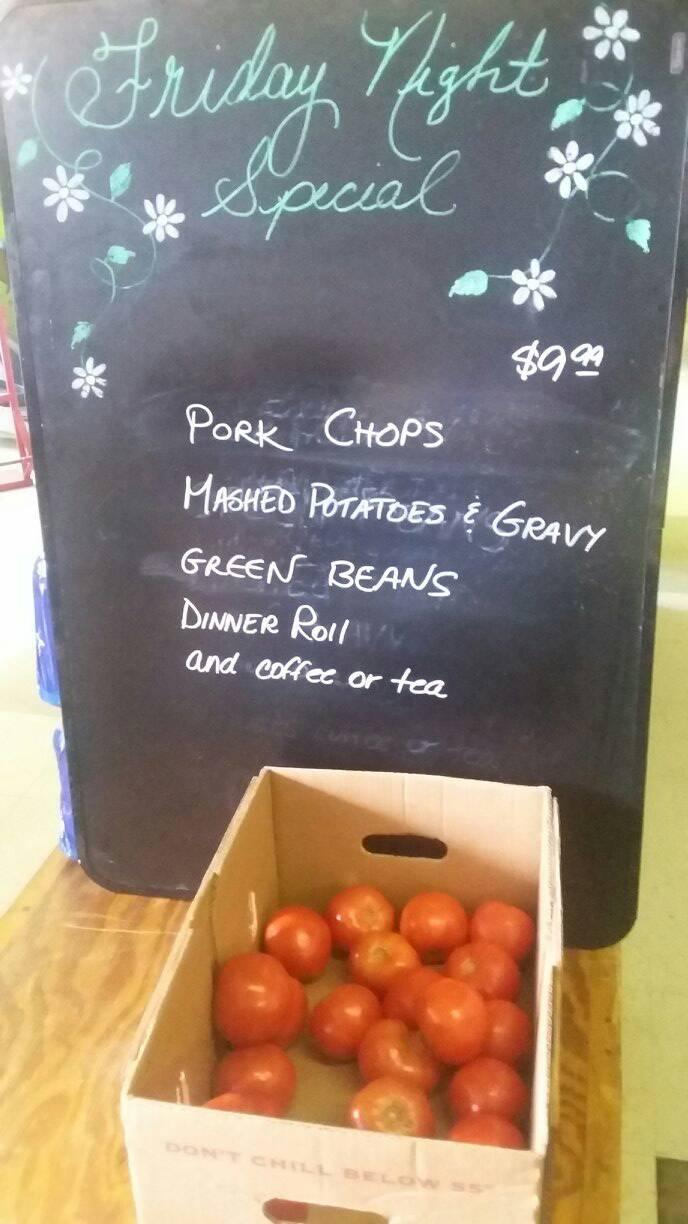 Friday Night
Special
$9.99
PORK CHOPS
MASHED POTATOES & GRAVY
GREEN BEANS
DINNER Roll
and coffee or tea
DON'T CHILL BELOW 55°